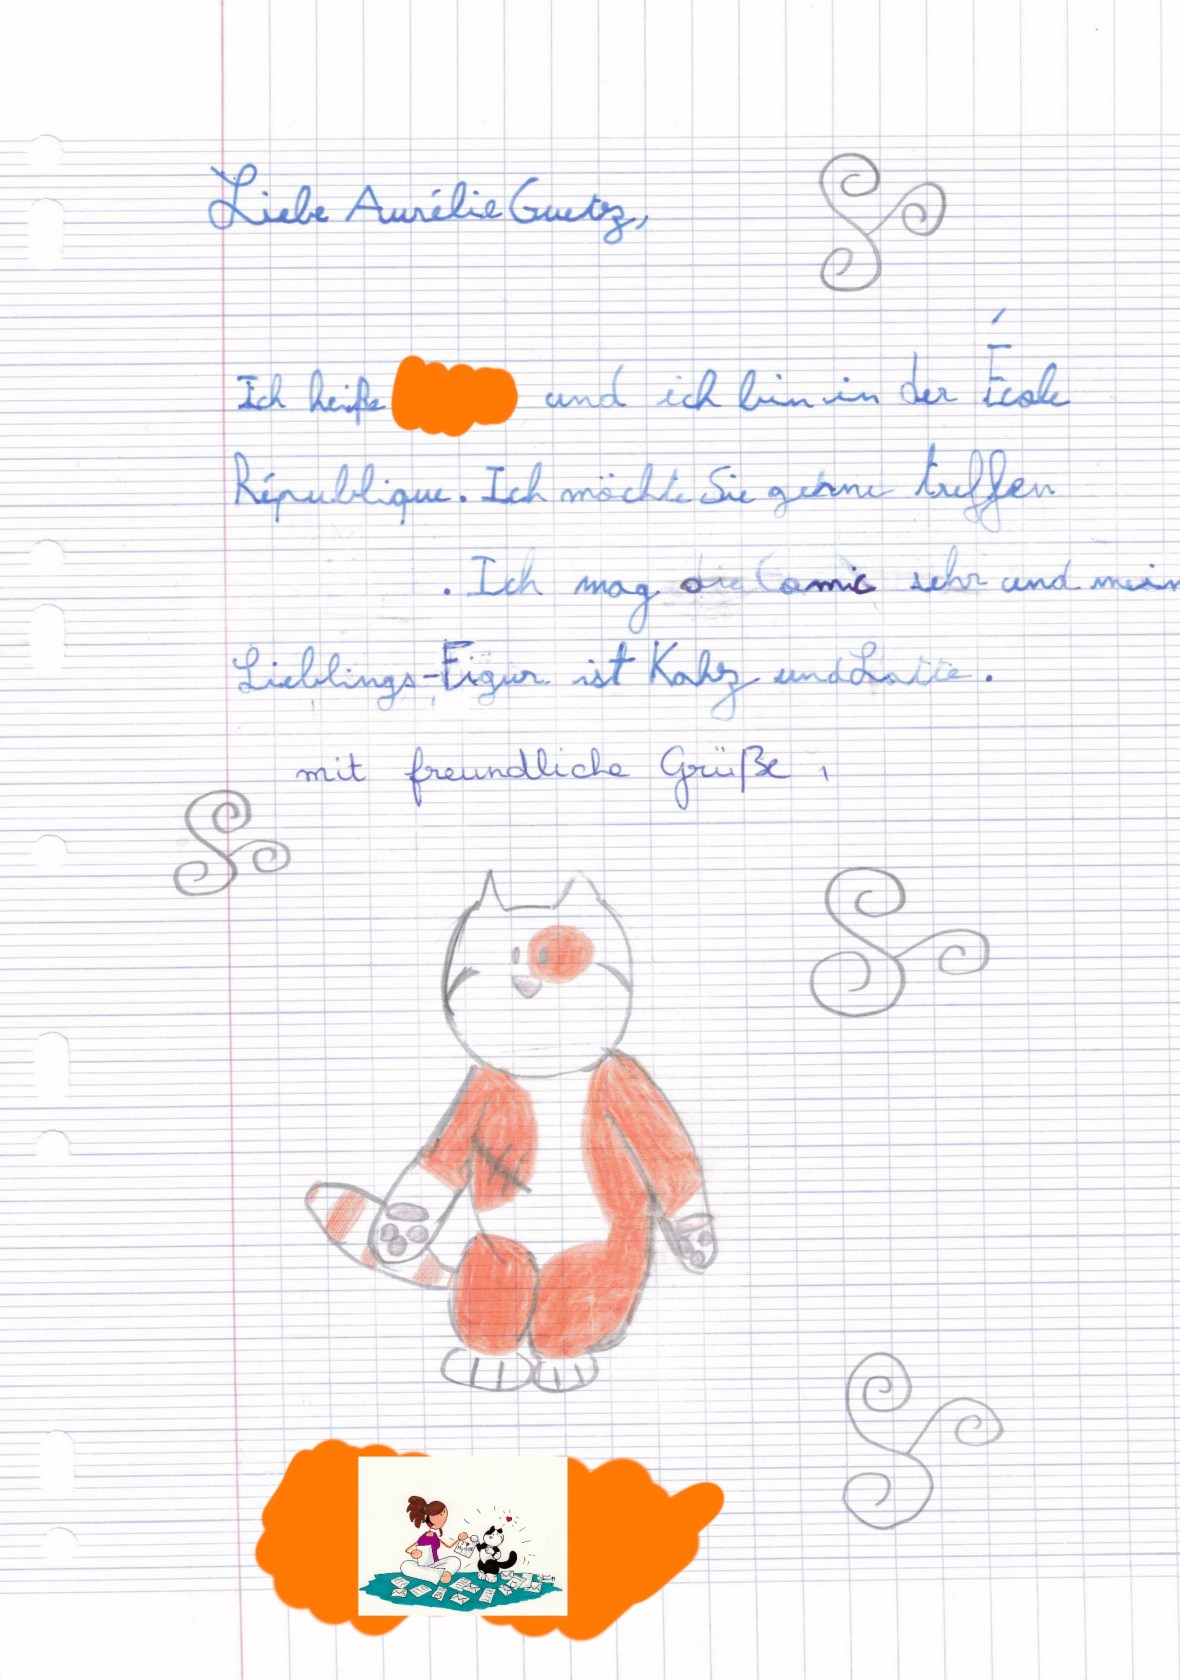 Liebe Aurélie Guetz,
Ich heiße und ich bin in der École
République. Ich möchte Sie gerne treffen
. Ich mag die Comic sehr und mein
Lieblings-Figur ist Kahz und Latte.
mit freundliche Grüße,